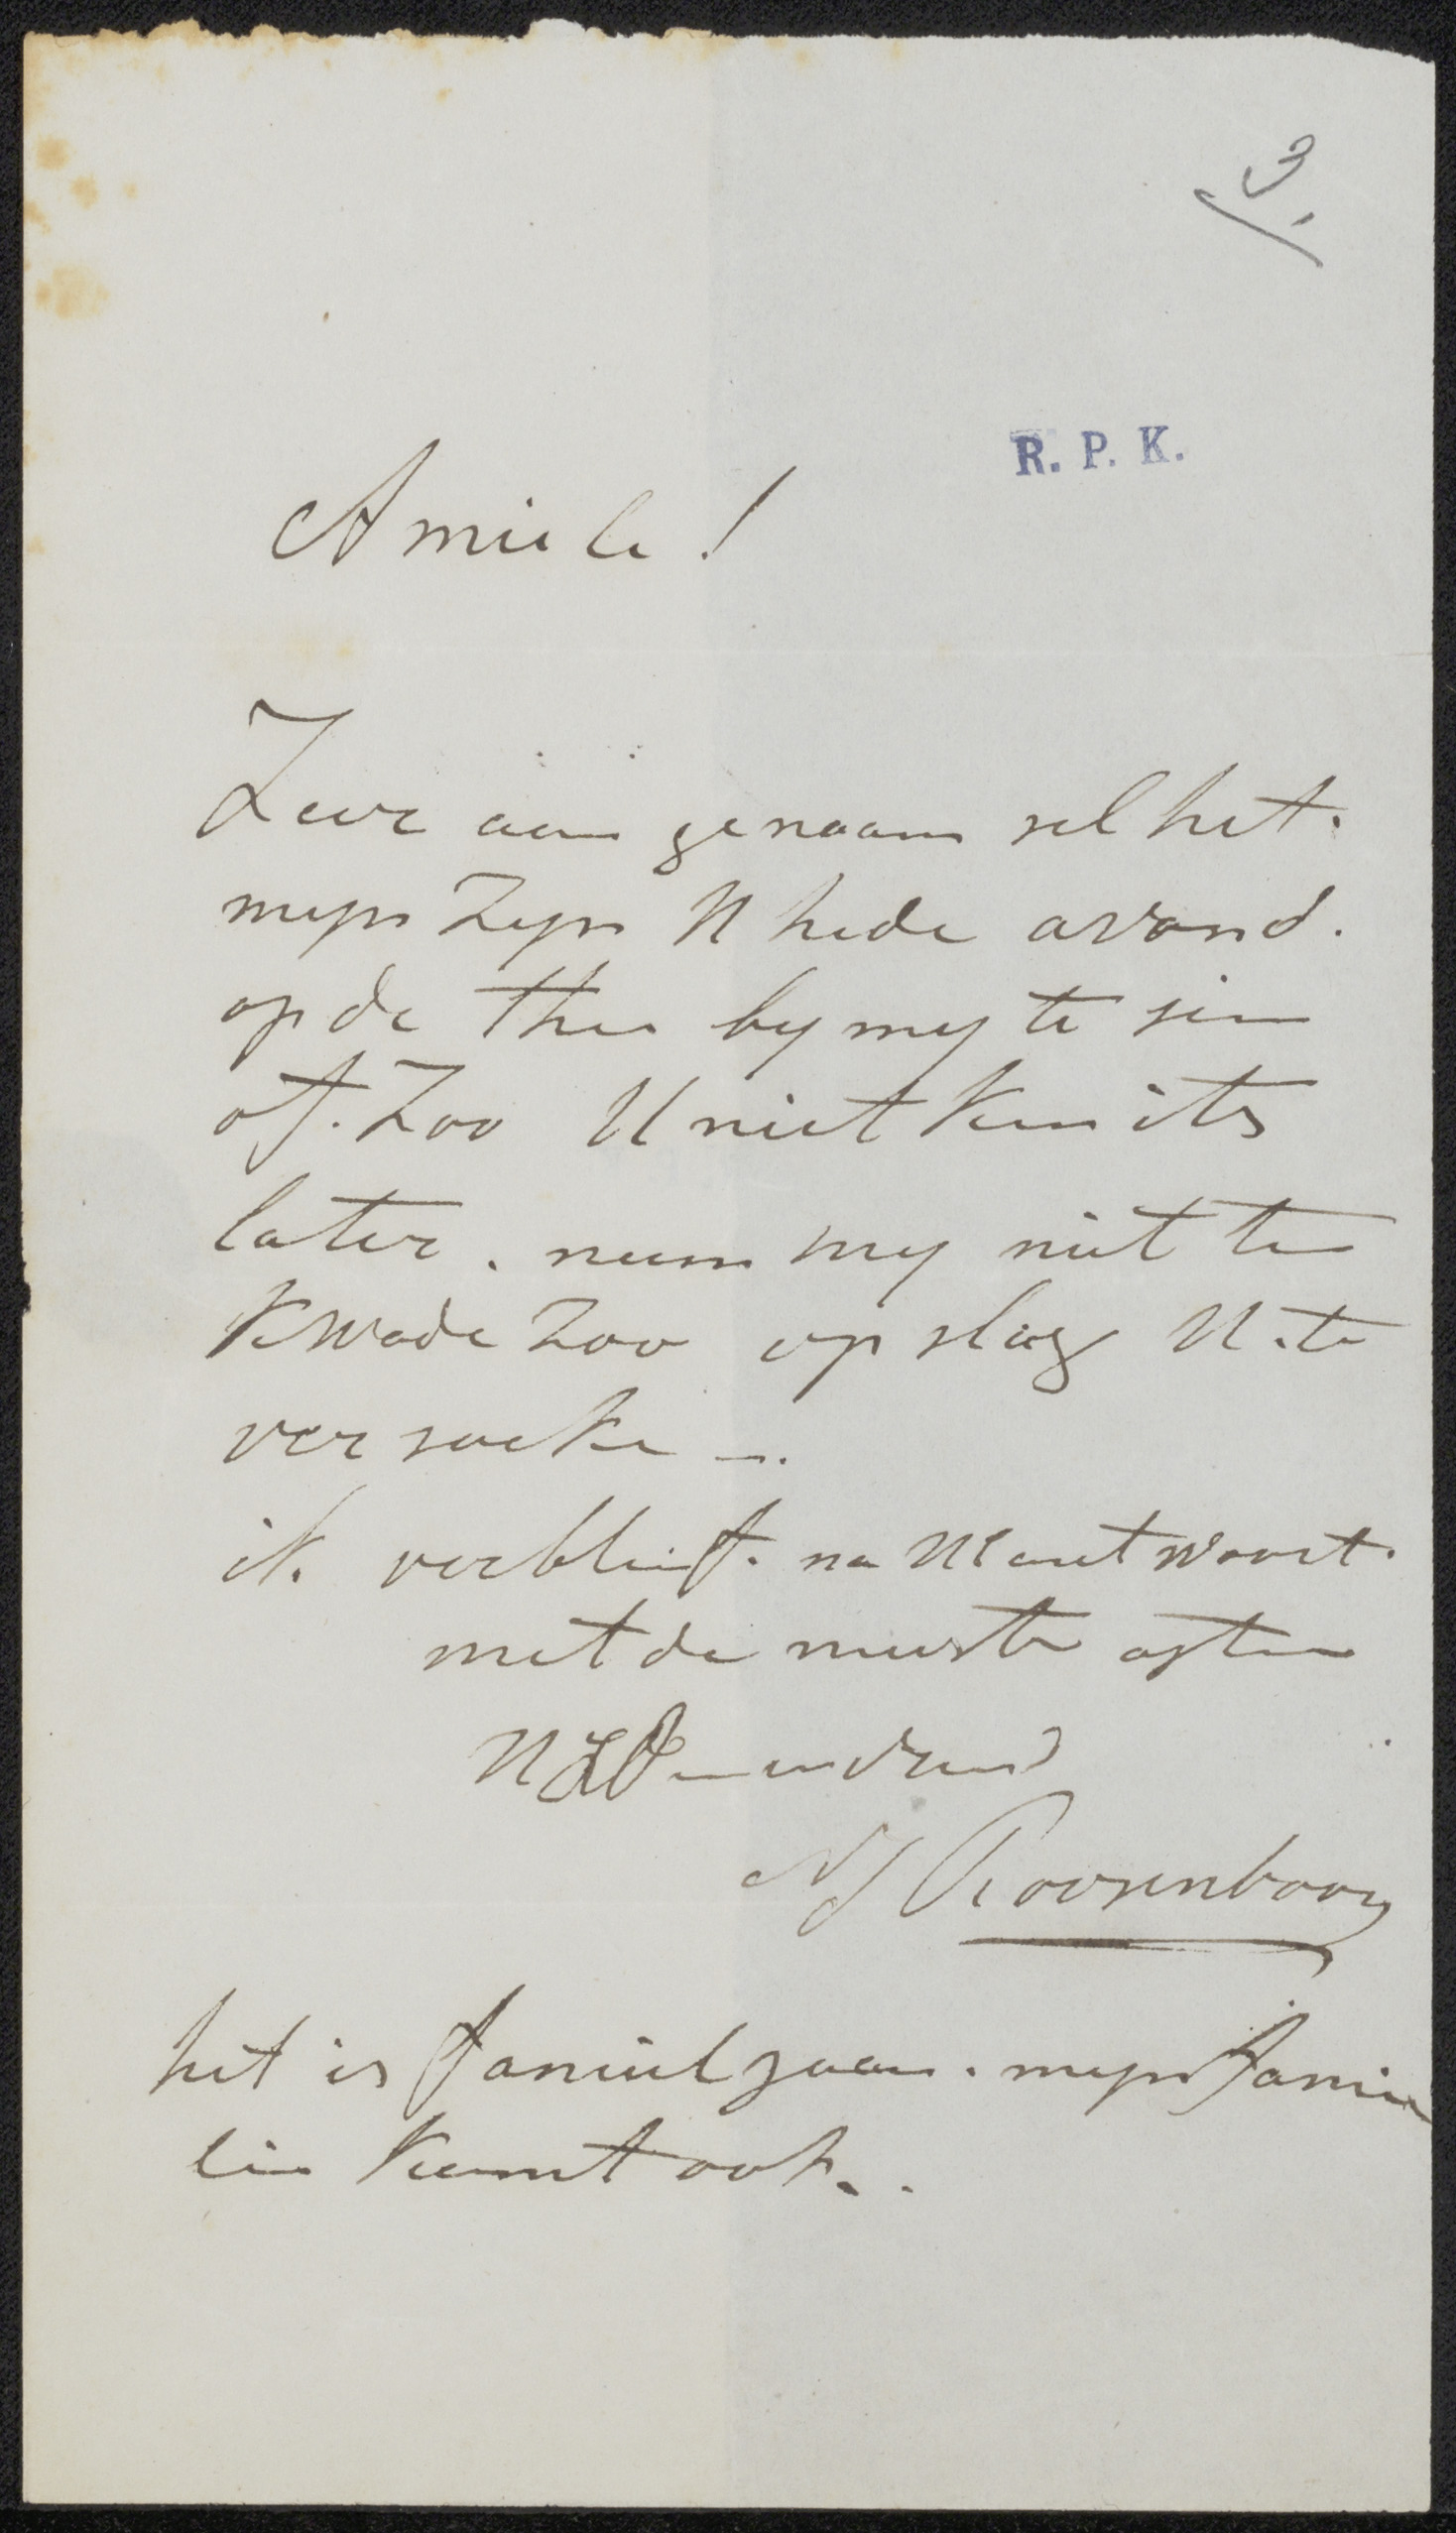 3.
R. P. K.
Amice !
Zeer aan genaam sel het.
myn zyn U hede avond.
op de thee by my te sien
of. Zoo U niet kan iets
later. neem my niet ten
kwade Zoo op slag U. te
ver soeke -.
ik. verblief. na UE antwoort.
met de meeste agten
UED vriend
NJ Roosenboom
het is familjaar. myn fami
lie komt ook..